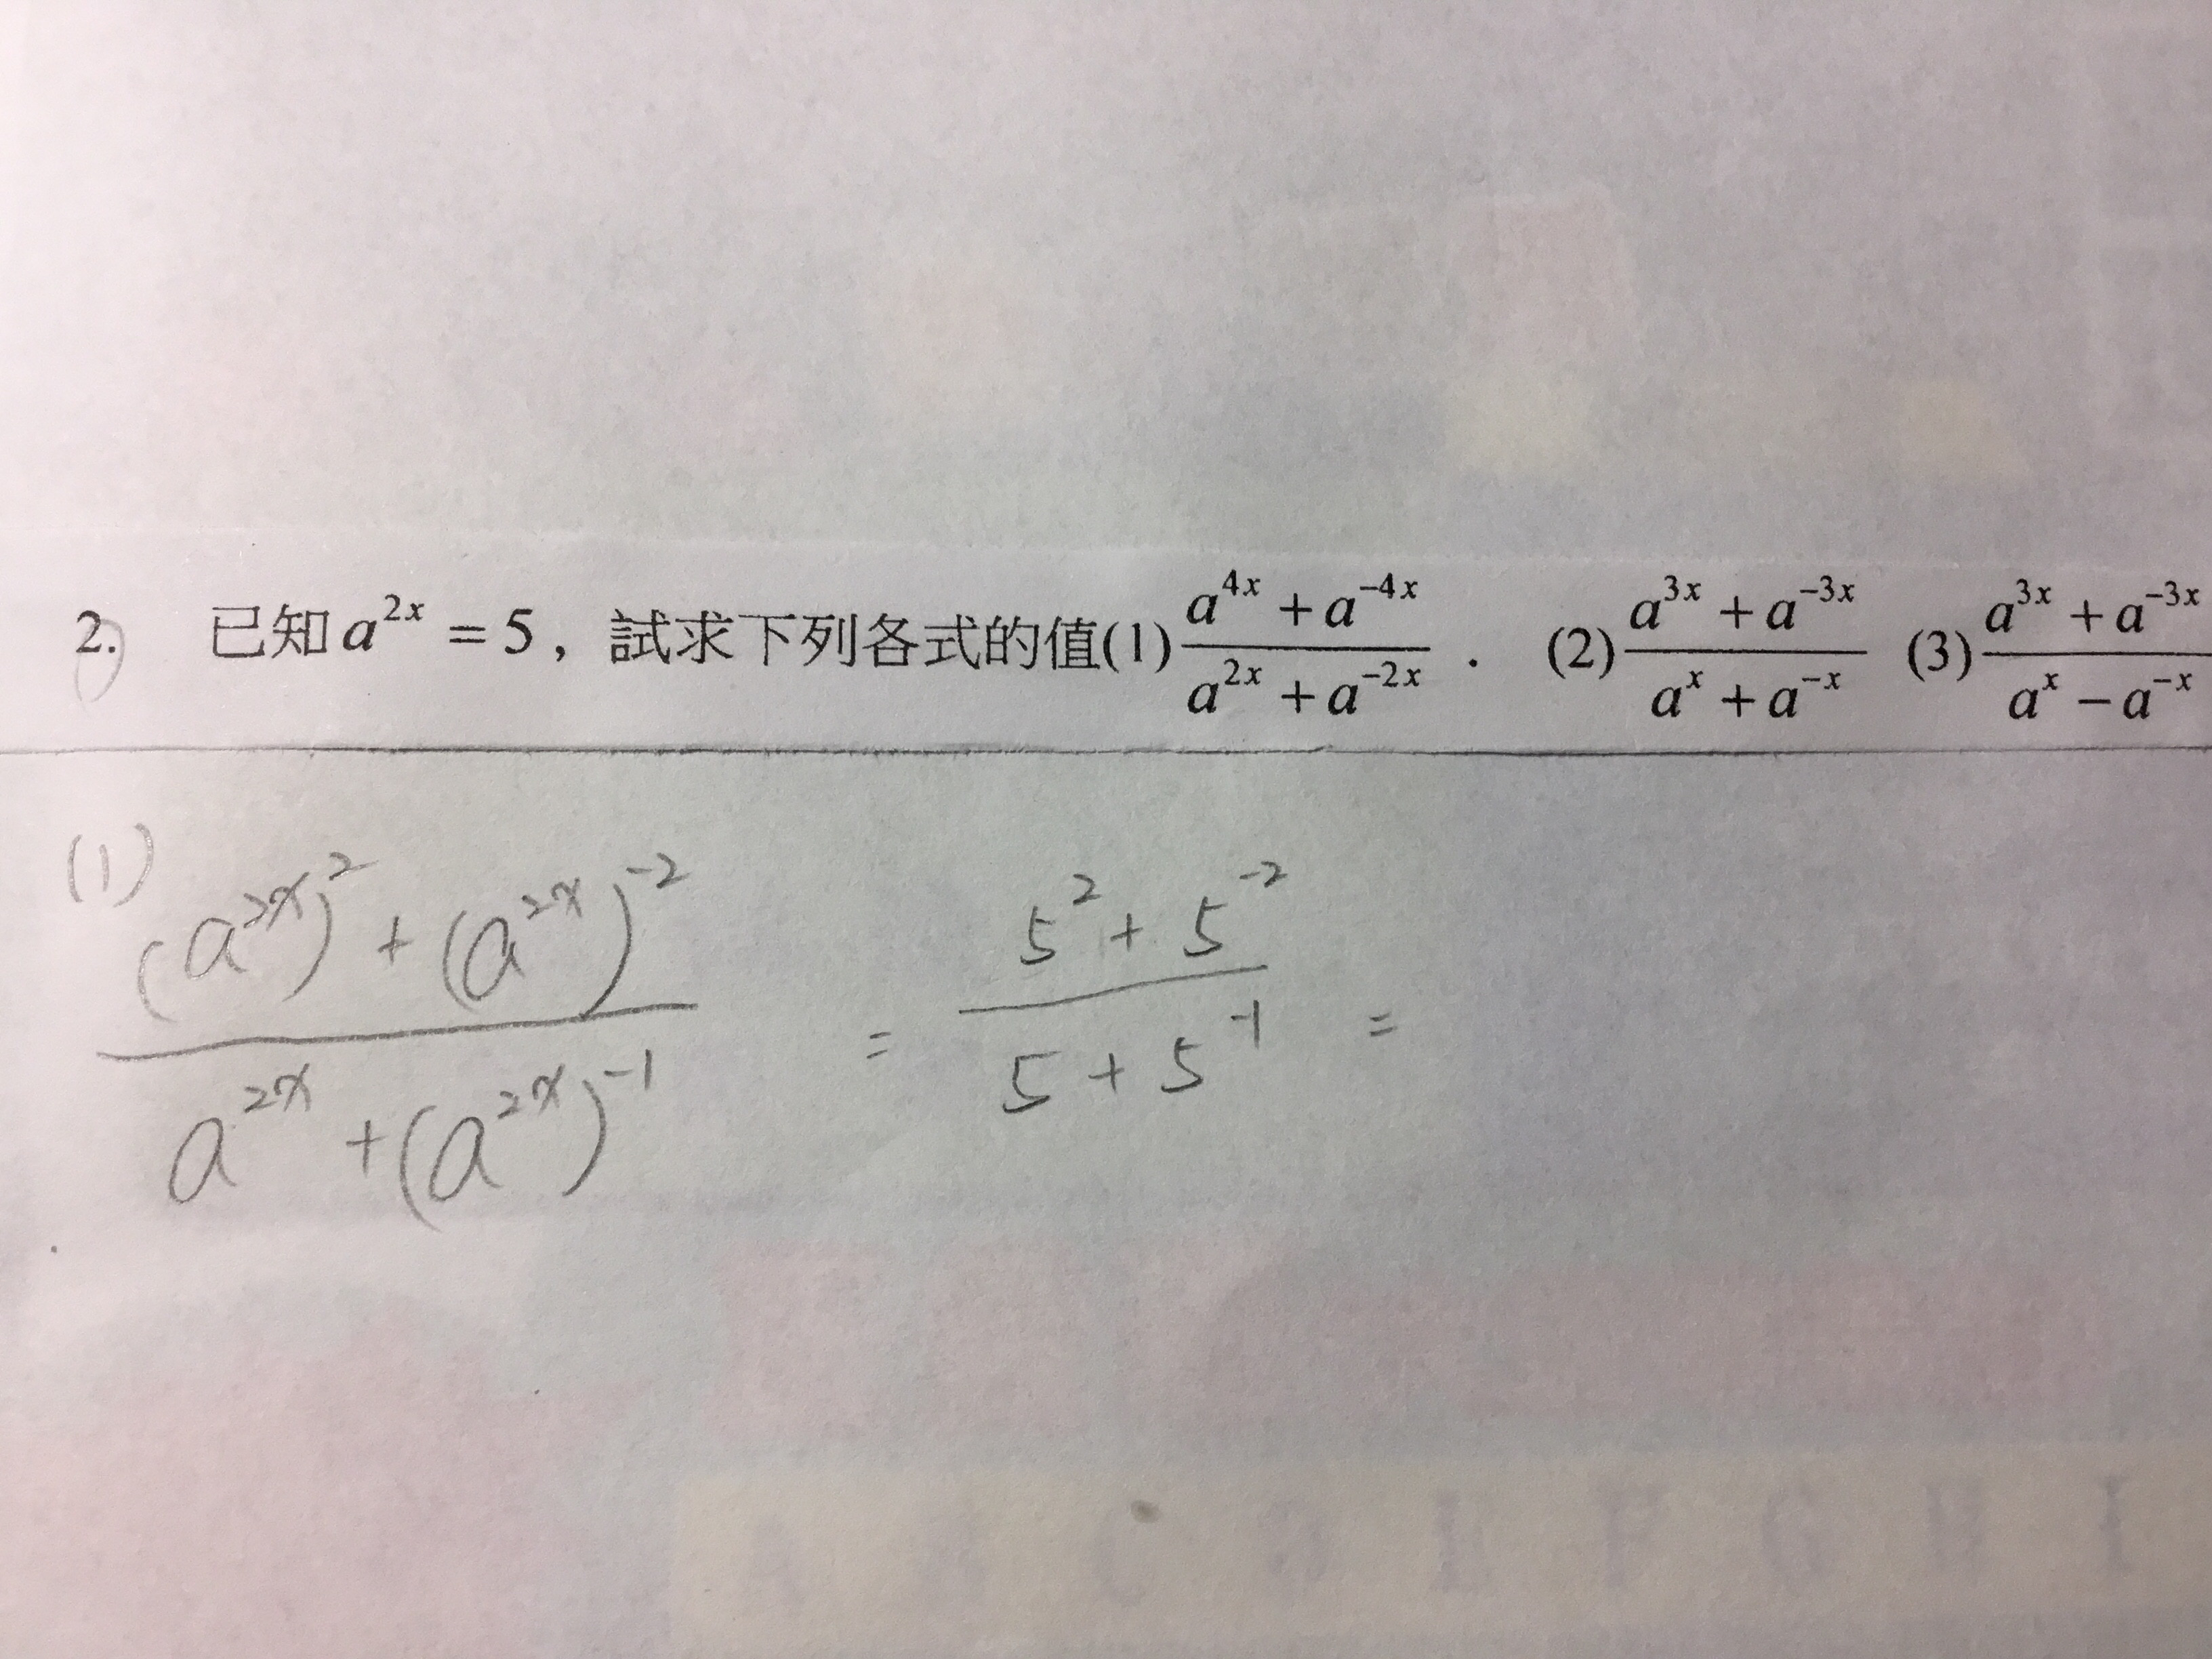 2. 已知 a^{2x} = 5，試求下列各式的值(1) \frac{a^{4x} + a^{-4x}}{a^{2x} + a^{-2x}} . (2) \frac{a^{3x} + a^{-3x}}{a^{x} + a^{-x}} (3) \frac{a^{3x} + a^{-3x}}{a^{x} - a^{-x}}
(1) \frac{(a^{2x})^{2} + (a^{2x})^{-2}}{a^{2x} + (a^{2x})^{-1}} = \frac{5^{2} + 5^{-2}}{5 + 5^{-1}} =